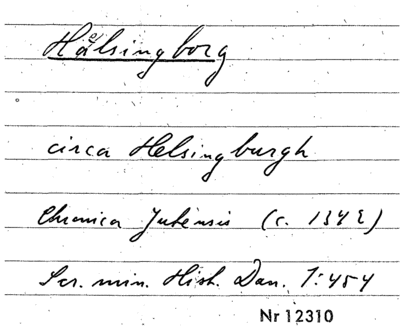 Hälsingborg
circa Helsingburgh
Chronica Jutensis (c. 1342)
Scr. min. Hist. Dan. 1:454
Nr 12310